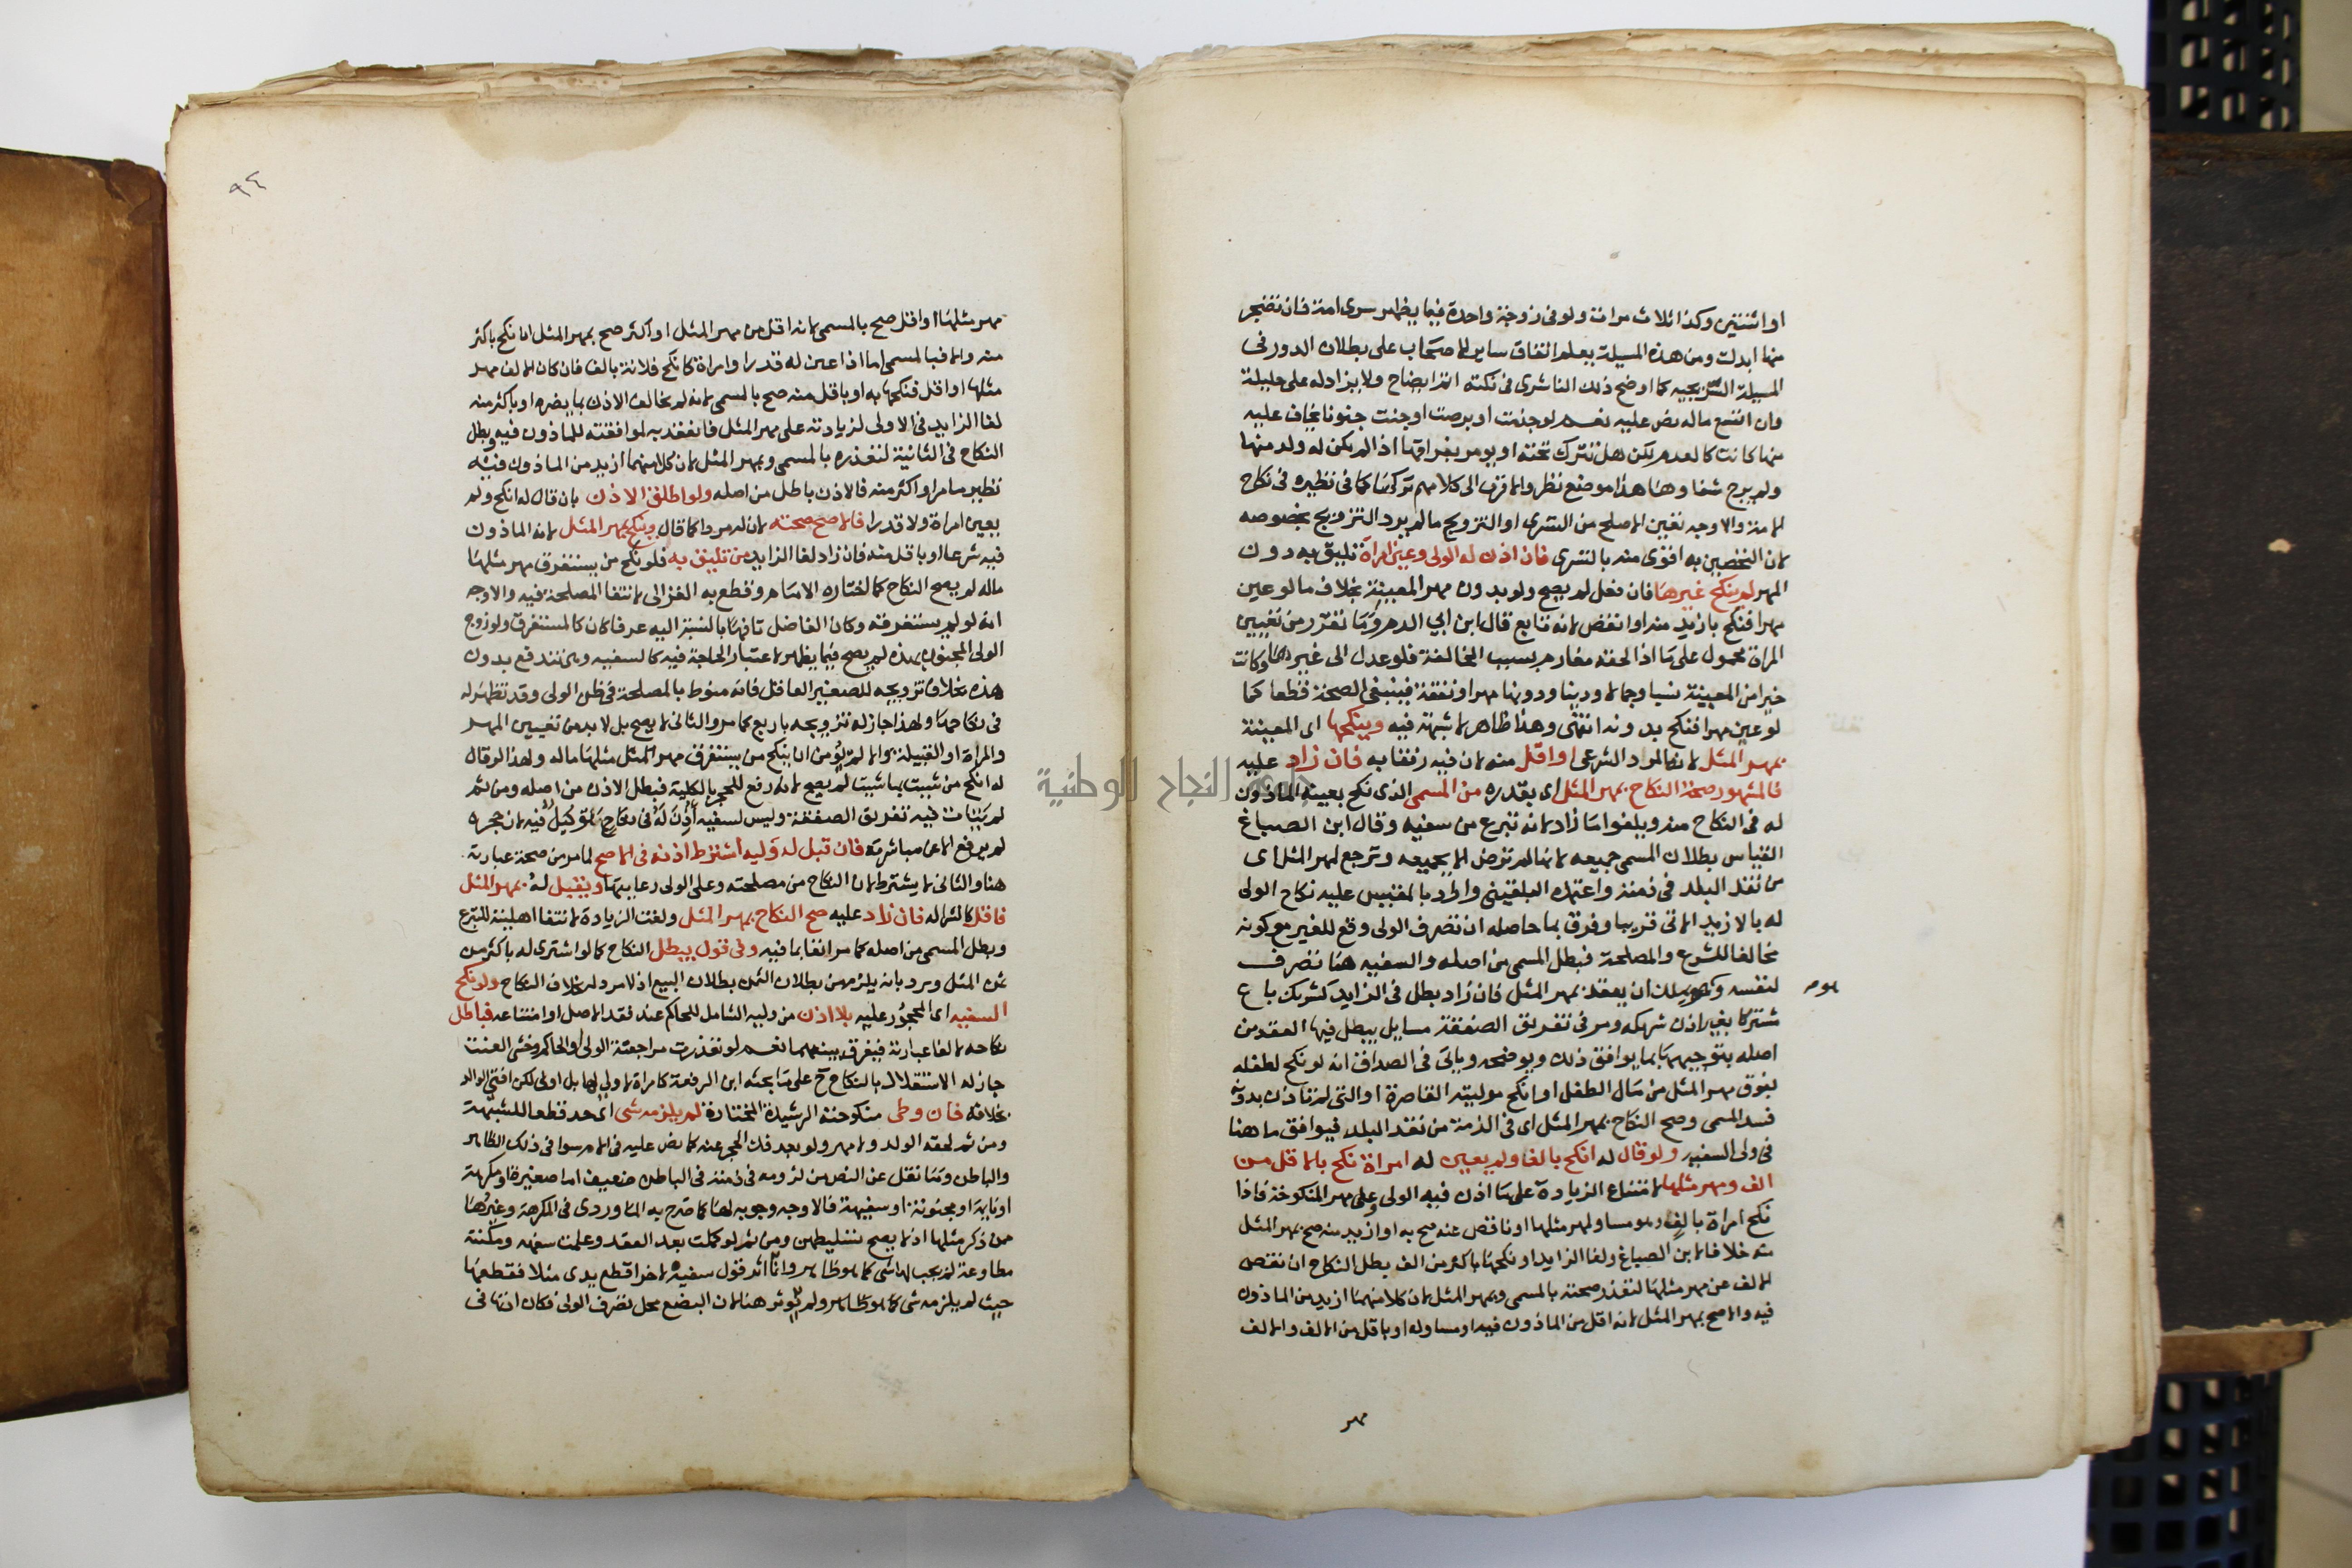 او اثنتين وكذا ثلاث مرات ولو في زوجة واحدة فيما يظهر سرى امة فان تضجر
منها ابدلت ومن هذه المسيلة يعلم اتفاق ساير الاصحاب على بطلان الدور في
المسيلة السريجيه كما اوضح ذلك الناشرى في نكته اتم ايضاح ولا يزاد له على حليلة
وان اتسع ماله نص عليه نعم لو جذمت او برصت او جنت جنونا يخاف عليه
منها كانت كالعدم لكن هل تترك تحته او يومر بفراقها اذا لم يكن له ولد منها
ولم يرج شفاوها هذا موضع نظر والاقرب الى كلامهم تركها كما في نظيره في نكاح
الامة والاوجه تعين الاصلح من التسرى او التزويج ما لم يرد التزويج بخصوصه
لان التحصين به اقوى منه بالتسرى فان اذن له الولى وعين امراة تليق به دون
المهر لم ينكح غيرها فان فعل لم يصح ولو بدون مهر المعينة بخلاف ما لو عين
مهرا فنكح بازيد منه او انقص لانه تابع قال ابن ابي الدم وما تقرر من تعيين
المراة محمول على ما اذا لحقه مغارم بسبب المخالفة فلو عدل الى غيرها وكانت
خيرا من المعينة نسبا وجمالا ودينا ودونها مهرا ونفقة فينبغي الصحة قطعا كما
لو عين مهرا فنكح بدونه انتهى وهذا ظاهر لا شبهة فيه وينكحها اى المعينة
بمهر المثل لانه المرد الشرعى او اقل منه لان فيه رفقا به فان زاد عليه
فالمشهور صحة النكاح بمهر المثل اى بقدره من المسمى الذى نكح بعينه الماذون
له في النكاح منه ويلغوا ما زاد لانه تبرع من سفيه وقال ابن الصباغ
القياس بطلان المسمى جميعه لانها لم ترض الا بجميعه وترجع لمهر المثل اى
من نقد البلد في ذمته واعتمده البلقينى واطرد بالمقيس عليه نكاح الولى
له بالازيد الاتى قريبا وفرق بما حاصله ان تصرف الولى وقع للغير مع كونه
مخالفا للشرع والمصلحة فبطل المسمى من اصله والسفيه هنا تصرف
لنفسه وهو يملك ان يعقد بمهر المثل فان زاد بطل في الزايد كشريك باع
هو مه
مشتركا بغير اذن شريكه ومر في تفريق الصفقة مسايل يبطل فيها العقد من
اصله بتوجيهها بما يوافق ذلك ويوضحه وياتى في الصداق انه لو نكح لطفله
بفوق مهر المثل من مال الطفل او انكح موليته القاصرة او التى لم تاذن بدونه
فسد المسمى وصح النكاح بمهر المثل اى في الذمة من نقد البلد فيوافق ما هنا
في ولى السفيه ولو قال له انكح بالف ولم يعين له امراة نكح بالاقل من
الف ومهر مثلها لامتناع الزيادة على ما اذن فيه الولى وعلى مهر المنكوحة فاذا
نكح امراة بالف وهو مساو لمهر مثلها او ناقص عنه صح به او ازيد منه صح بمهر المثل
منه خلافا لابن الصباغ ولغا الزايد او نكحها باكثر من الف بطل النكاح ان نقص
الالف عن مهر مثلها لتعذر صحته بالمسمى وبمهر المثل لان كلا منهما ازيد من الماذون
فيه والاصح بمهر المثل لانه اقل من الماذون فيه او مساو له او باقل من الالف والالف
مهر
٩٤
مهر مثلها او اقل صح بالمسمى لانه اقل من مهر المثل او اكثر صح بمهر المثل ان نكح باكثر
منه والا فبالمسمى اما اذا عين له قدرا وامراة كانكح فلانة بالف فان كان الالف مهر
مثلها او اقل فنكحها به او باقل منه صح بالمسمى لانه لم يخالف الاذن بما يضره او باكثر منه
لغا الزايد في الاولى لزيادته على مهر المثل فانعقد به لموافقته للماذون فيه وبطل
النكاح في الثانية لتعذره بالمسمى وبمهر المثل لان كلا منهما ازيد من الماذون فيه
نظير ما مر او اكثر منه فالاذن باطل من اصله ولو اطلق الاذن بان قال له انكح ولم
يعين امراة ولا قدرا فالاصح صحته لان له مردا كما قال وينكح بمهر المثل لانه الماذون
فيه شرعا او باقل منه فان زاد لغا الزايد من تليق به فلو نكح من يستغرق مهر مثلها
ماله لم يصح النكاح كما اختاره الامام وقطع به الغزالى لانتفا المصلحة فيه والاوجه
انه لو لم يستغرقه وكان الفاضل تافها بالنسبة اليه عرفا كان كالمستغرق ولو زوج
الولى المجنون بهذه لم يصح فيما يظهر لاعتبار الحاجة فيه كالسفيه وهى تندفع بدون
هذه بخلاف تزويجه للصغير العاقل فانه منوط بالمصلحة في ظن الولى وقد تظهر له
في نكاحها ولهذا جاز له تزويجه باربع كما مر والثانى لا يصح بل لا بد من تعيين المهر
والمراة او القبيلة والا لم يؤمن ان ينكح من يستغرق مهر المثل مثلها ماله ولهذا لو قال
له انكح من شيت بما شيت لم يصح لانه رفع للحجر بالكلية فبطل الاذن من اصله ومن ثم
لم يتات فيه تفريق الصفقة وليس لسفيه اذن له في نكاح توكيل فيه لان حجره
لم يرفع الا عن مباشرته فان قبل له وليه اشترط اذنه في الاصح لما مر من صحة عبارته
هنا والثانى لا يشترط لان النكاح من مصلحته وعلى الولى رعايتها ويقبل له بمهر المثل
فاقل كالشرا له فان زاد عليه صح النكاح بمهر المثل ولغت الزيادة لانتفا اهلية التبرع
وبطل المسمى من اصله كما مر انفا بما فيه وفي قول يبطل النكاح كما لو اشترى له باكثر من
ثمن المثل ويرد بانه يلزم من بطلان الثمن بطلان البيع اذ لا مرد له بخلاف النكاح ولو نكح
السفيه اى المحجور عليه بلا اذن من وليه الشامل للحاكم عند فقد الاصل او امتناعه فباطل
نكاحه لالغا عبارته فيفرق بينهما نعم لو تعذرت مراجعة الولى او الحاكم وخشى العنت
جاز له الاستقلال بالنكاح ح على ما بحثه ابن الرفعة كامراة لا ولى لها بل اولى لكن افتى الوالد
بخلافه فان وطى منكوحته الرشيدة المختارة لم يلزمه شى اى حد قطعا للشبهة
ومن ثم لحقه الولد ولا مهر ولو بعد فك الحجر عنه كما نص عليه في الام سوا في ذلك الظاهر
والباطن وما نقل عن النص من لزومه في ذمته في الباطن ضعيف اما صغيرة او مكرهة
او نايمة او مجنونة او سفيهة فالاوجه وجوبه لها كما صرح به الماوردى في المكرهة وغيرها
ممن ذكر مثلها اذ لا يصح تسليطهن ومن ثم لو كملت بعد العقد وعلمت سفهه ومكنته
مطاوعة لم يجب لها شى كما هو ظاهر وانما اثر قول سفيه لاخر اقطع يدى مثلا فقطعها
حيث لم يلزمه شى كما هو ظاهر ولم يؤثر هنا لان البضع محل تصرف الولى فكان اذنها في